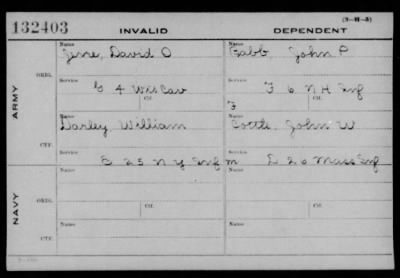 (3-H-5)
132403 INVALID DEPENDENT
Name Name
Jene, David O Babb, John P
ORIG.
Service Service
G 4 Wis Cav F 6 N H Inf
Ctf. Ctf.
ARMY
F
Name Name
Darley William Cottle, John W
CTF.
Service Service
B 25 N Y Inf m D 26 Mass Inf
Name Name
ORIG.
NAVY
Ctf. Ctf.
Name Name
CTF.